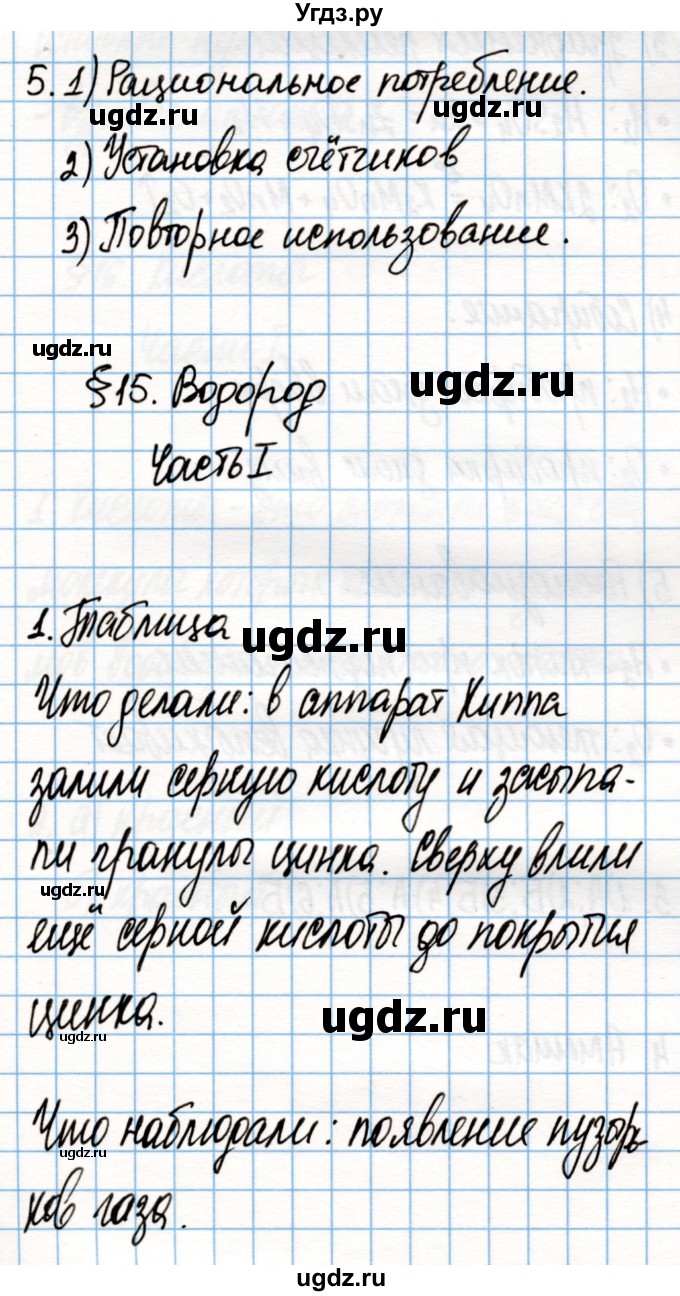 Угдз.ру
5. 1) Рациональное потребление.
ugdz.ru ugdz.ru
2) Установка счётчиков
3) Повторное использование.
ugdz.ru
§ 15. Водород ugdz.ru
Часть I
1. Таблица ugdz.ru
Что делали: в аппарат Киппа
залили серную кислоту и засыпа-
ли гранулы цинка. Сверху влили
ugdz.ru
ещё серной кислоты до покрытия
цинка. ugdz.ru
ugdz.ru
Что наблюдали: появление пузырь-
ugdz.ru
ков газа.
ugdz.ru